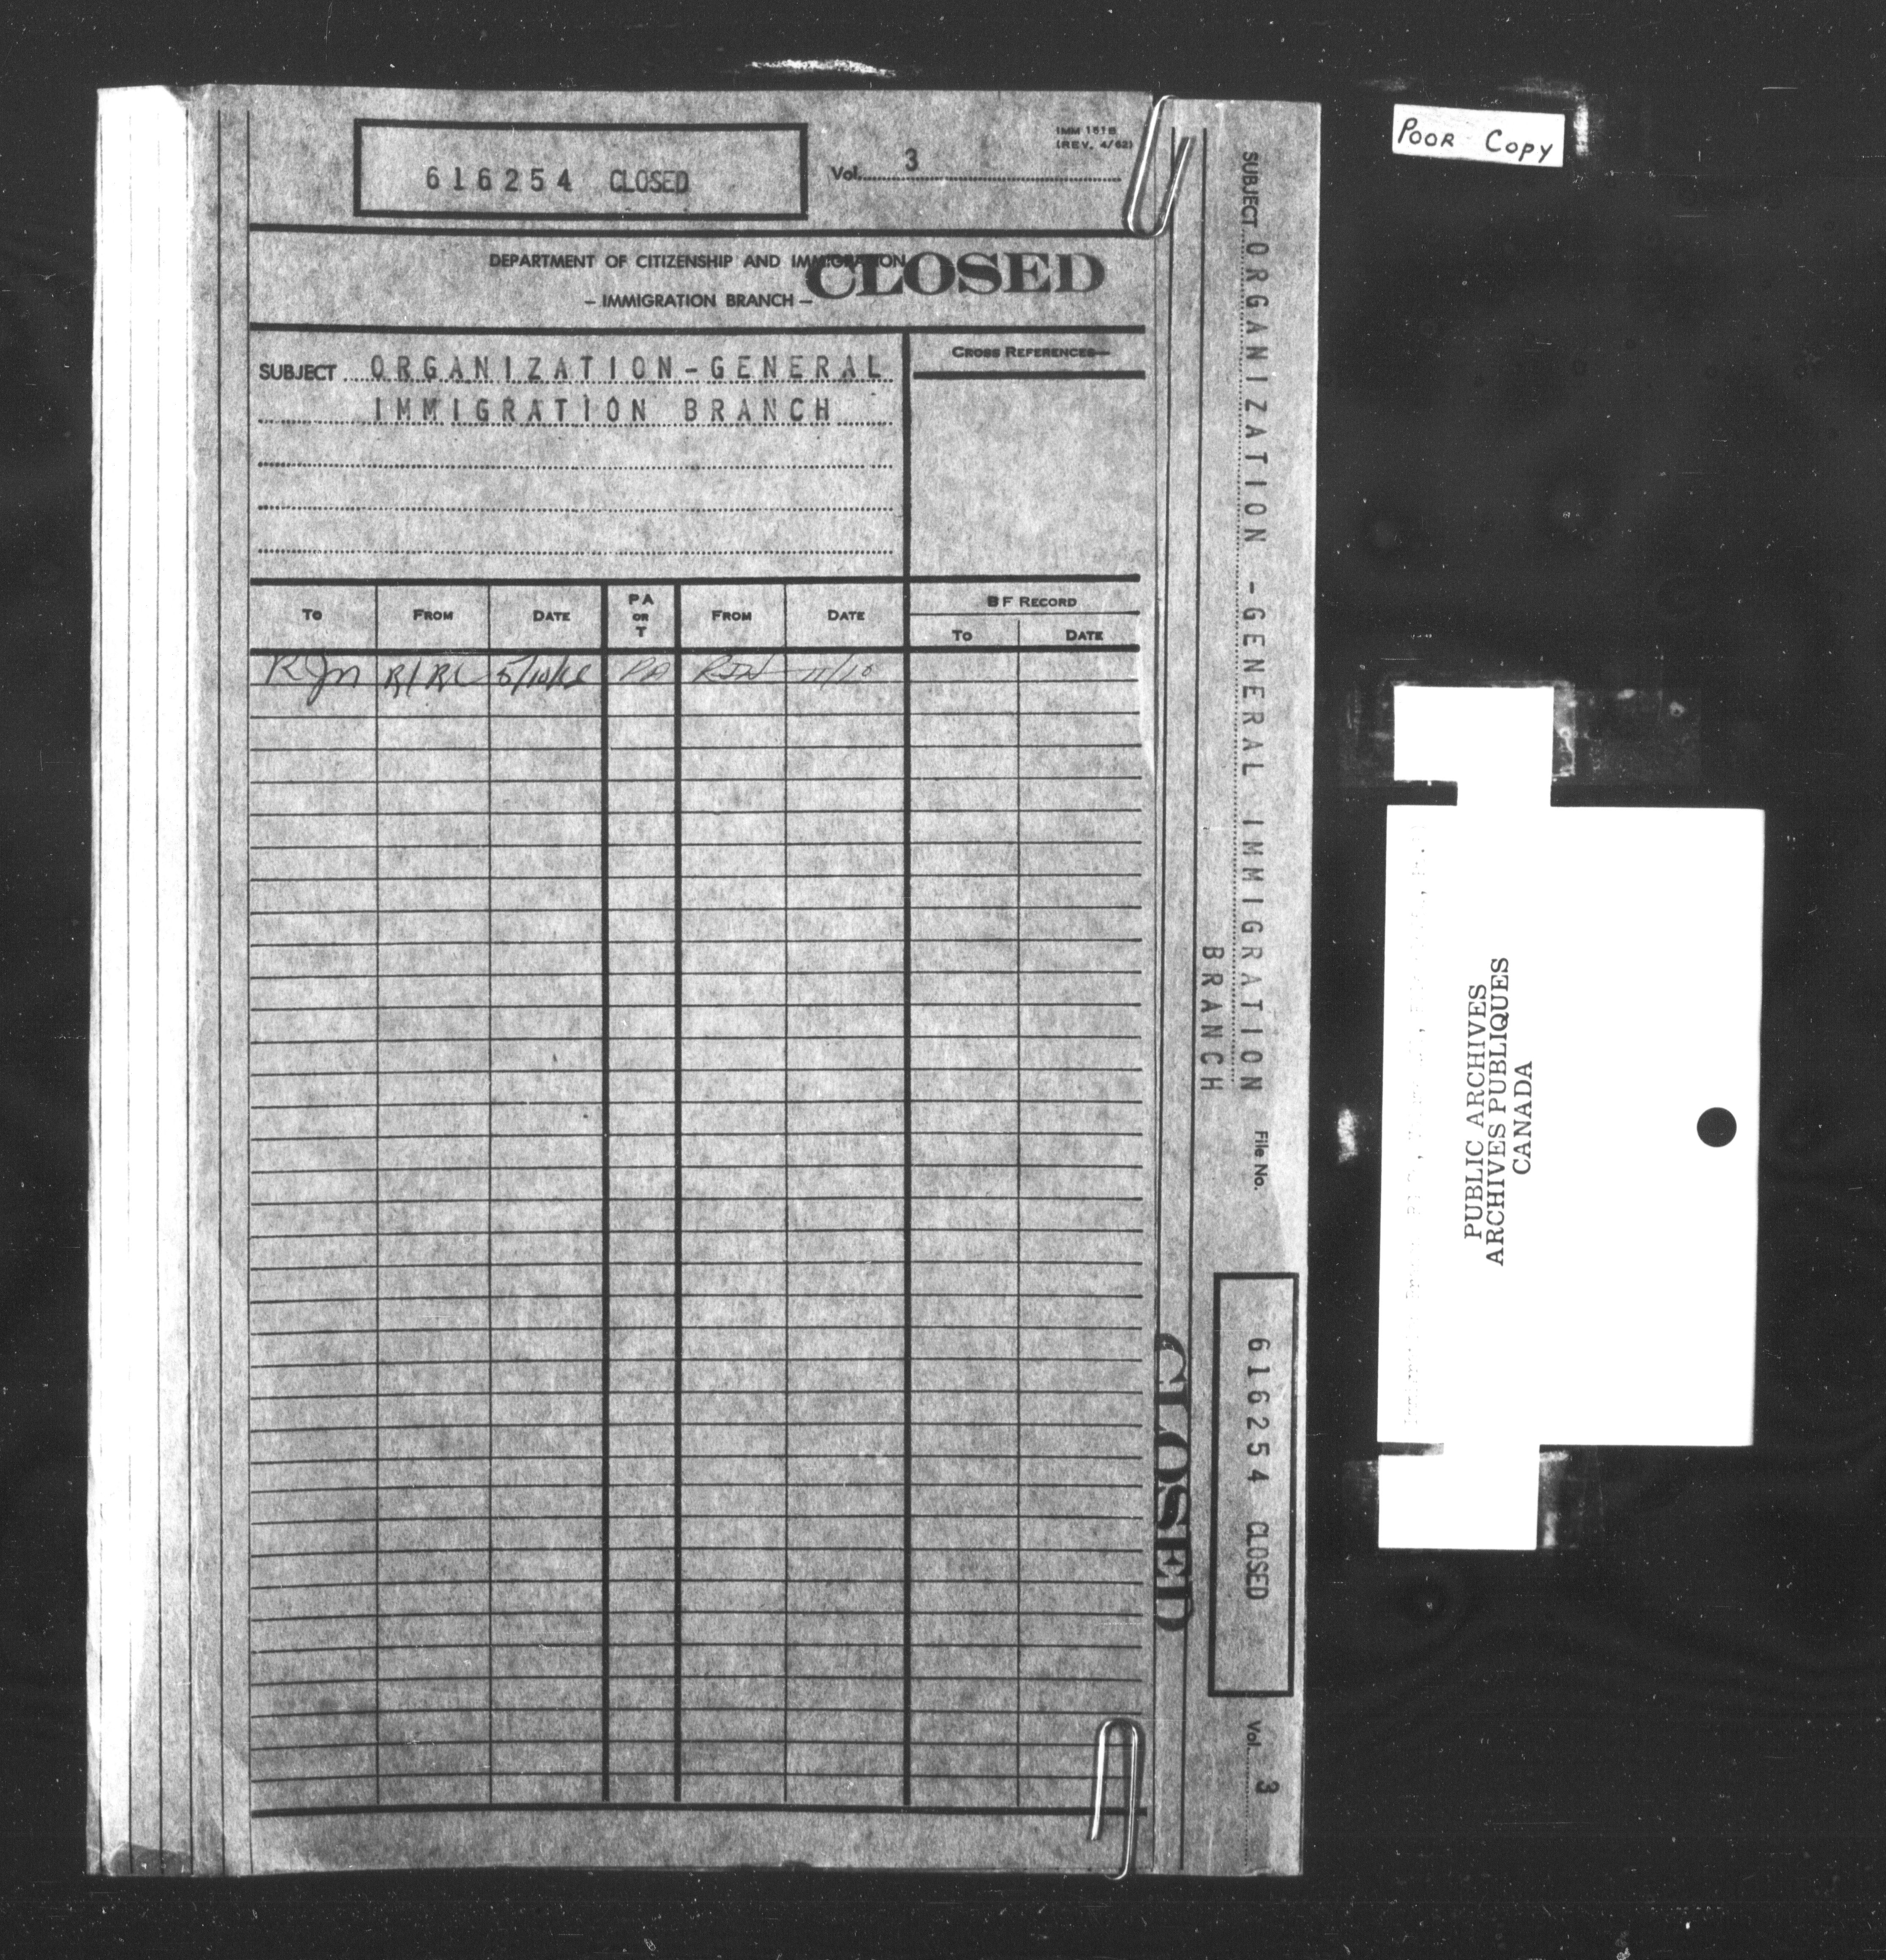 POOR COPY
616254 CLOSED
Vol. 3
IMM 181B
(REV. 4/62)
DEPARTMENT OF CITIZENSHIP AND IMMIGRATION
CLOSED
- IMMIGRATION BRANCH -
SUBJECT ORGANIZATION-GENERAL
IMMIGRATION BRANCH
CROSS REFERENCES-
TO FROM DATE PA OR T FROM DATE
BF RECORD
TO DATE
5/10/ PA 11/10
SUBJECT ORGANIZATION - GENERAL IMMIGRATION
BRANCH
File No.
616254 CLOSED
Vol. 3
CLOSED
PUBLIC ARCHIVES
ARCHIVES PUBLIQUES
CANADA